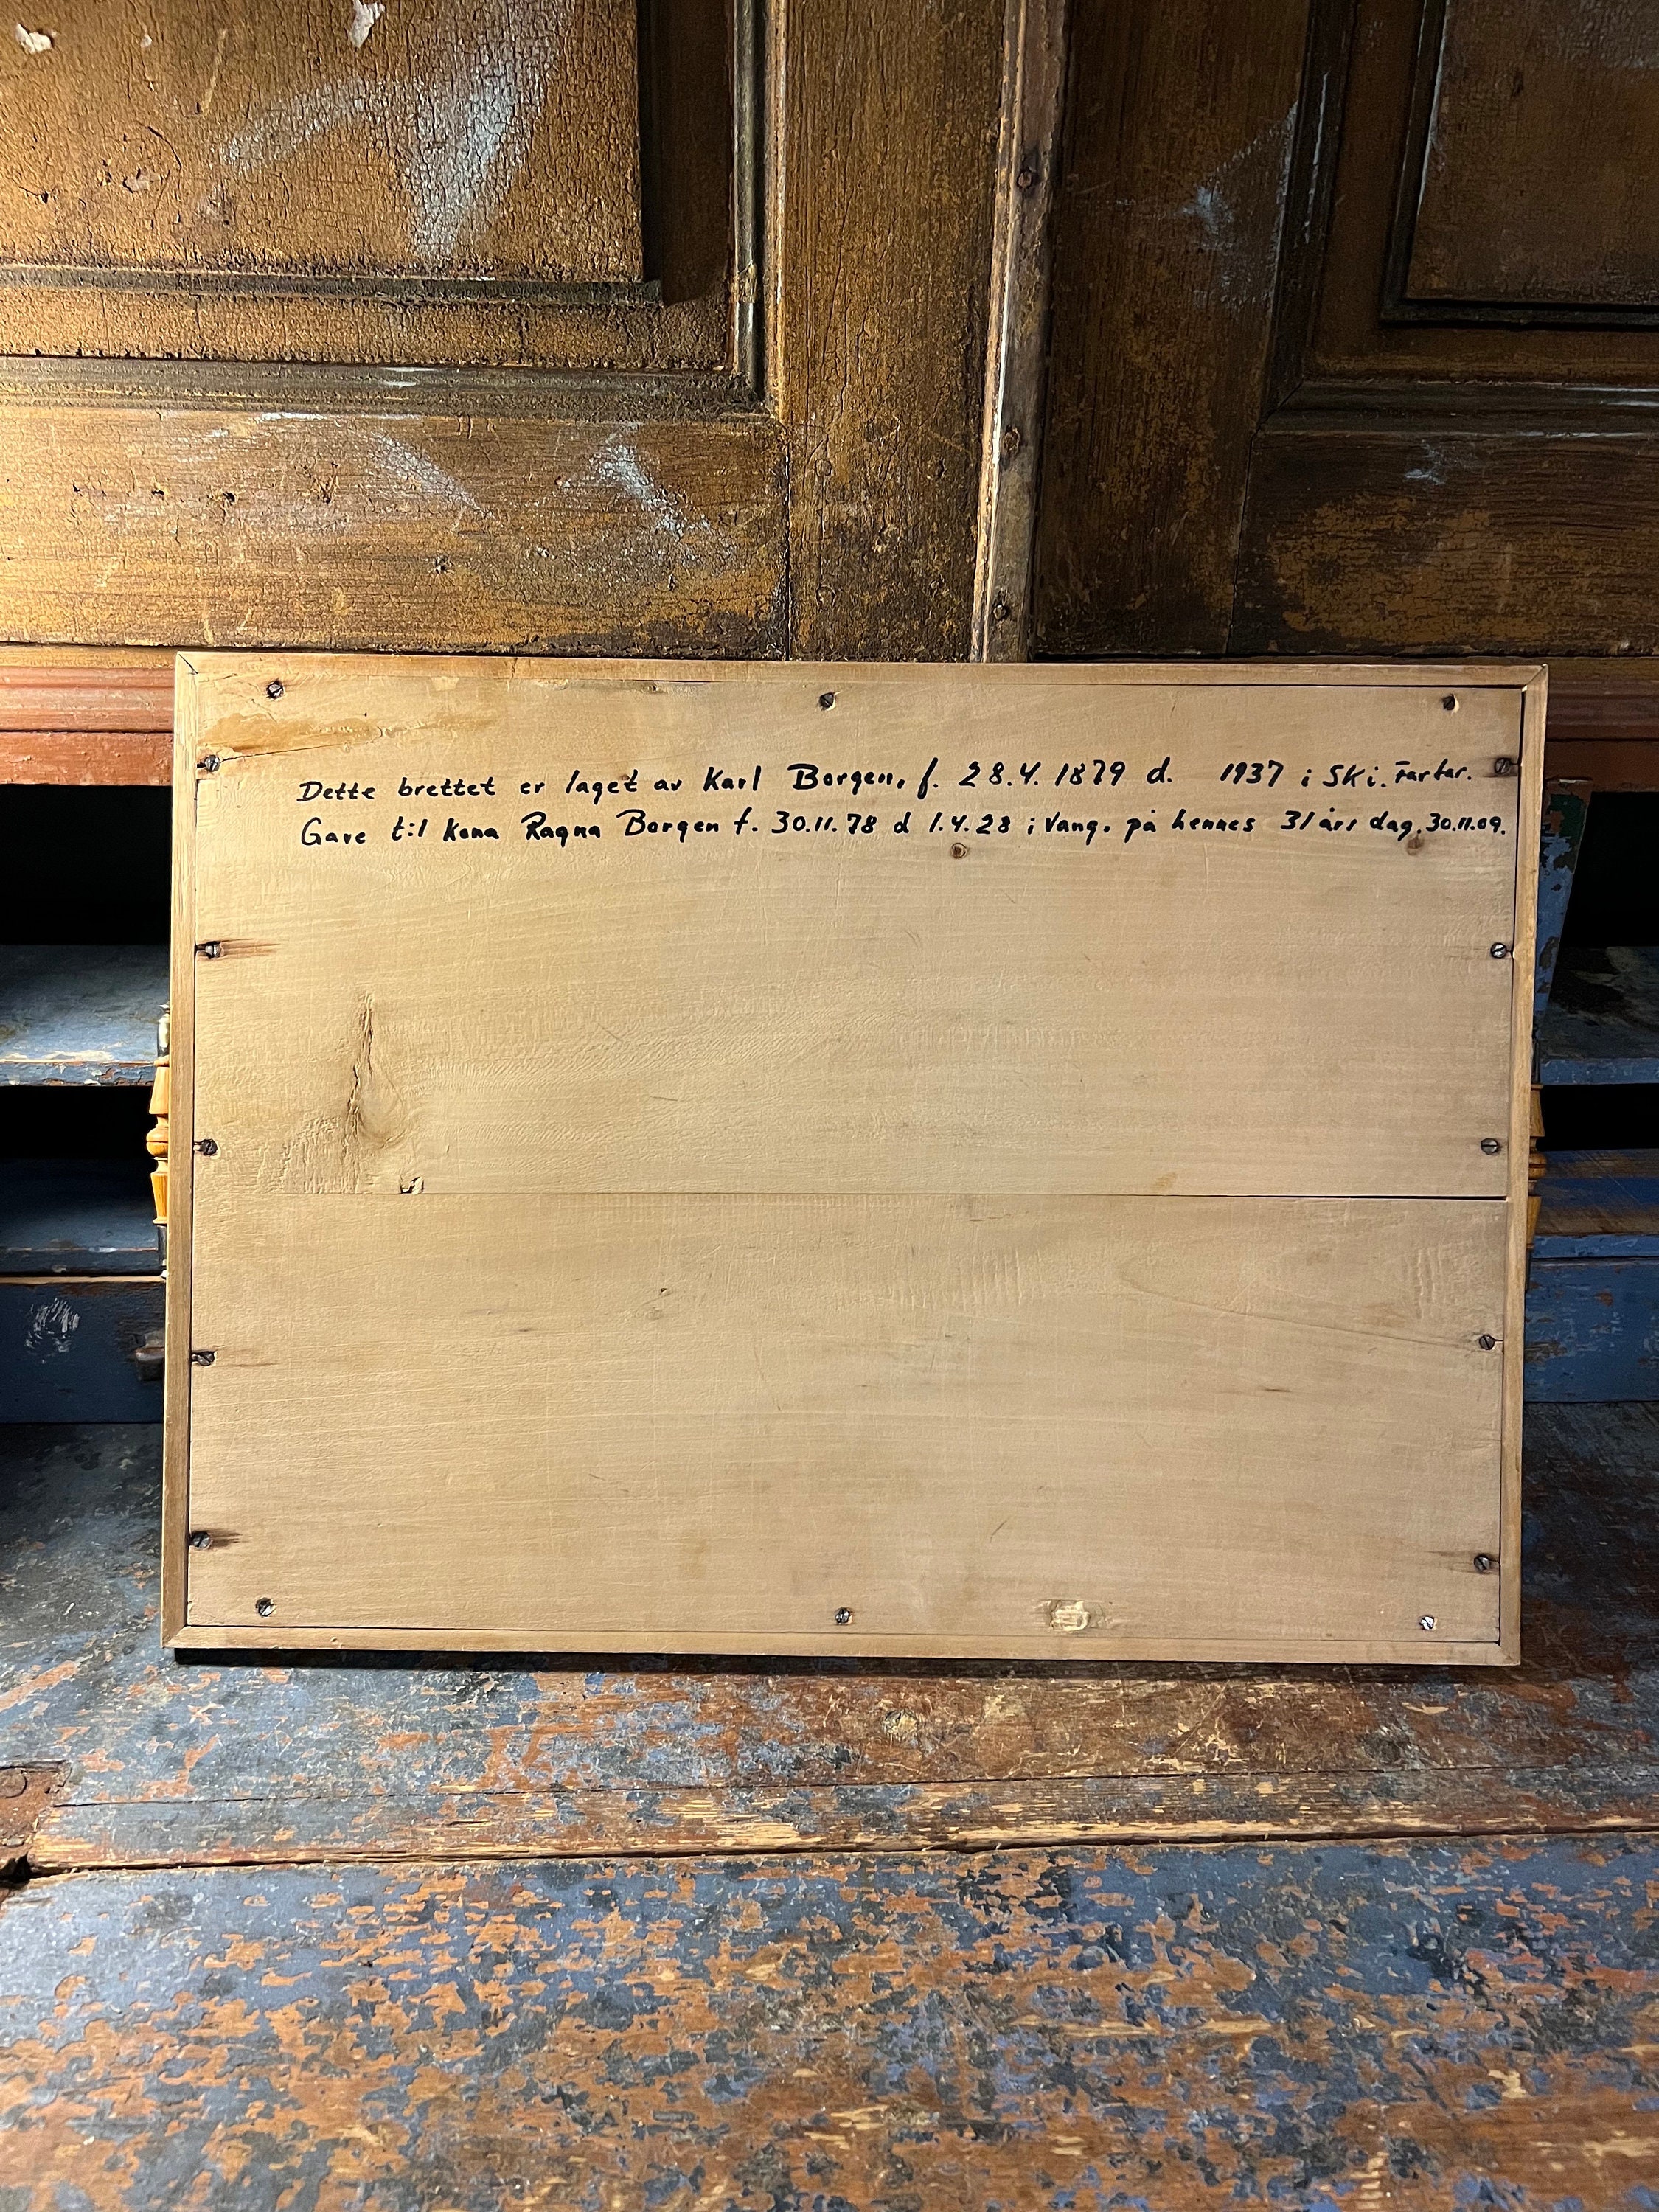 Dette brettet er laget av Karl Borgen, f. 28.4.1879 d. 1937 i Ski. Farfar.
Gave til kona Ragna Borgen f. 30.11.78 d 1.4.28 i Vang. på hennes 31 års dag. 30.11.09.